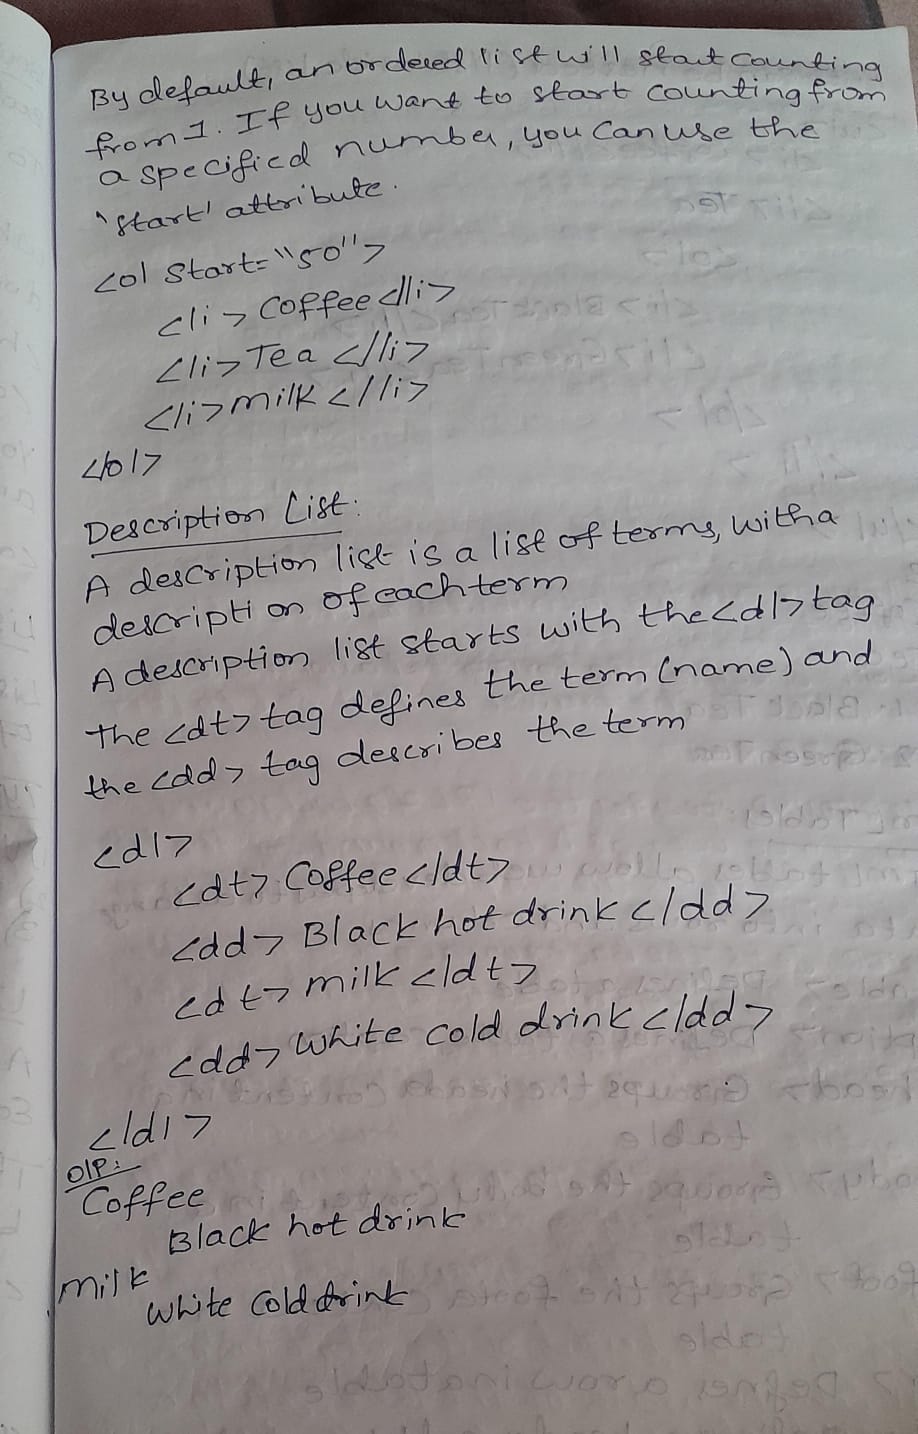 By default, an ordered list will start counting
from 1. If you want to start counting from
a specified number, you can use the
'start' attribute.
<ol start="50">
<li> Coffee </li>
<li> Tea </li>
<li> milk </li>
</ol>
Description List:
A description list is a list of terms, with a
description of each term
A description list starts with the <dl> tag
The <dt> tag defines the term (name) and
the <dd> tag describes the term
<dl>
<dt> Coffee </dt>
<dd> Black hot drink </dd>
<dt> milk </dt>
<dd> White cold drink </dd>
</dl>
O/P:
Coffee
Black hot drink
milk
White cold drink